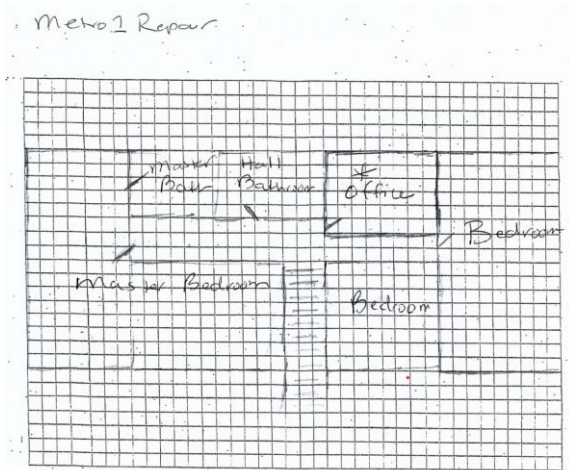 Metro1 Repair
Master
Bath
Hall
Bathroom
*
Office
Bedroom
Master Bedroom
Bedroom